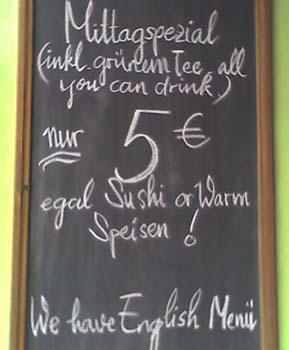 Mittagspezial
(inkl. grünem Tee, all
you can drink,)
nur 5 €
egal Sushi or Warm
Speisen !
We have English Menü